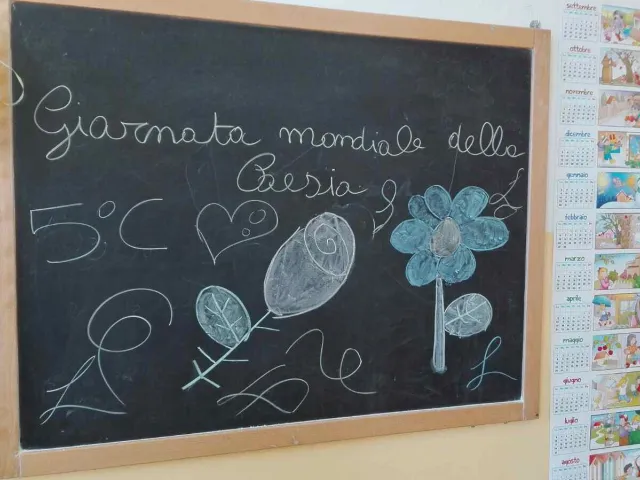 Giornata mondiale della
Poesia
5°C
settembre
ottobre
novembre
dicembre
gennaio
febbraio
marzo
aprile
maggio
giugno
luglio
agosto